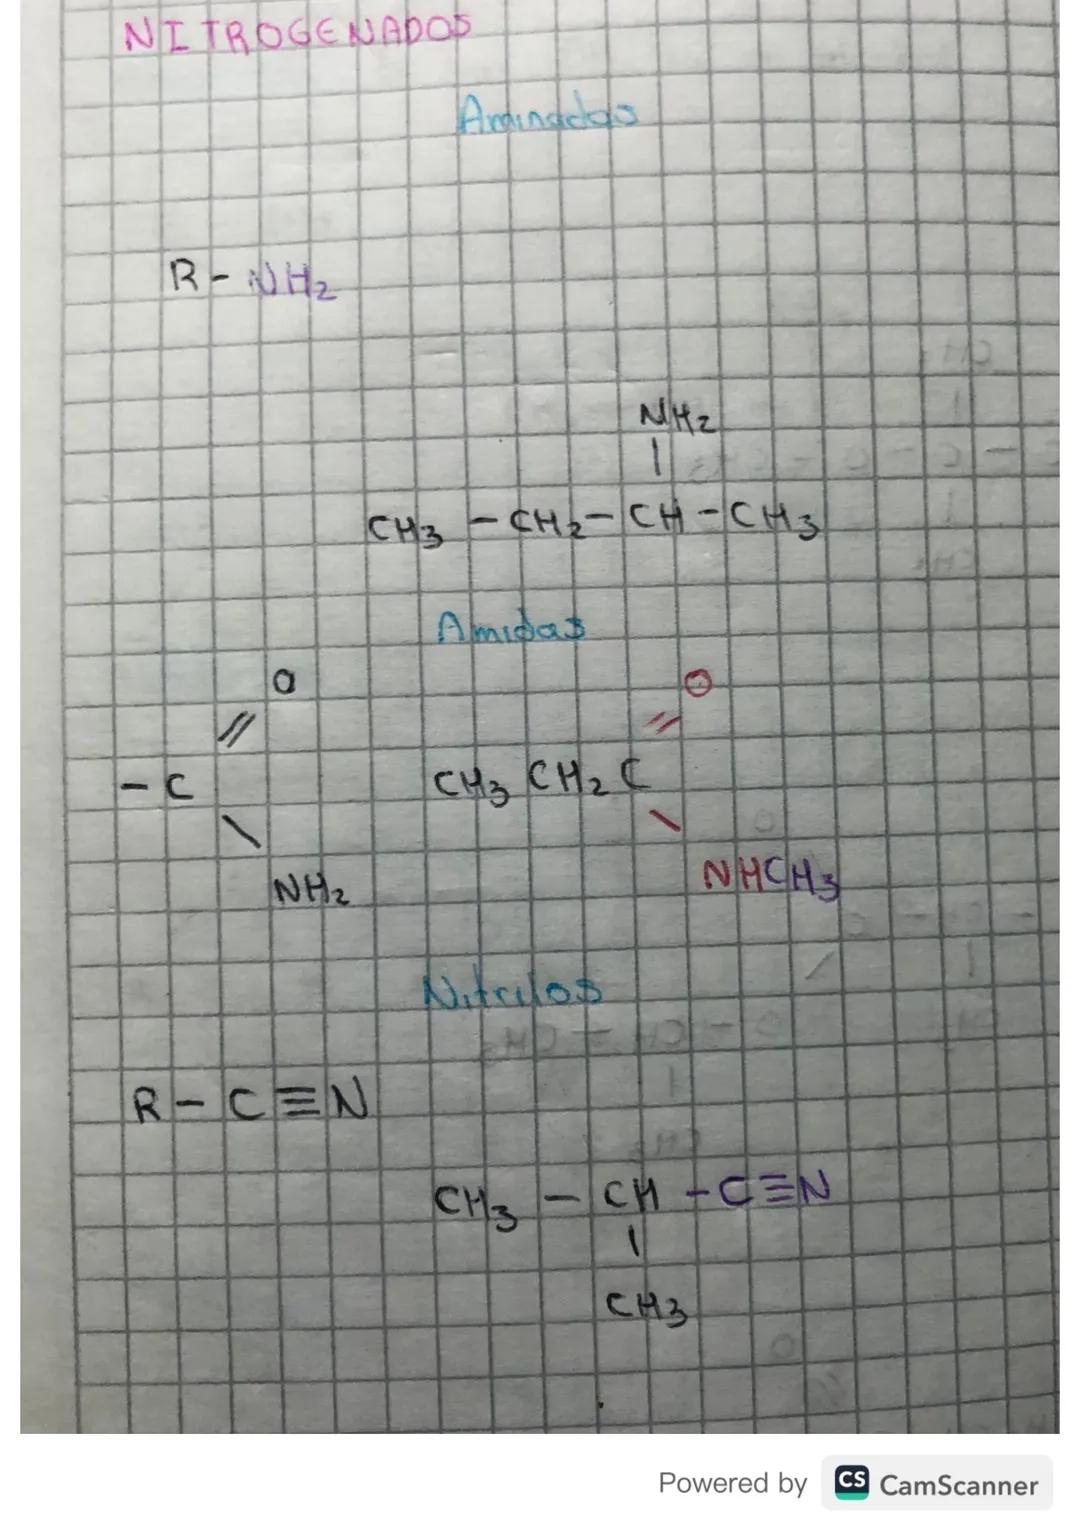 NITROGENADOS
Aminadas
R - NH2
NH2
|
CH3 - CH2 - CH - CH3
Amidas
O O
// //
- C CH3 CH2 C
\ \
NH2 NHCH3
Nitrilos
R - C ≡ N
CH3 - CH - C≡N
|
CH3
Powered by CS CamScanner